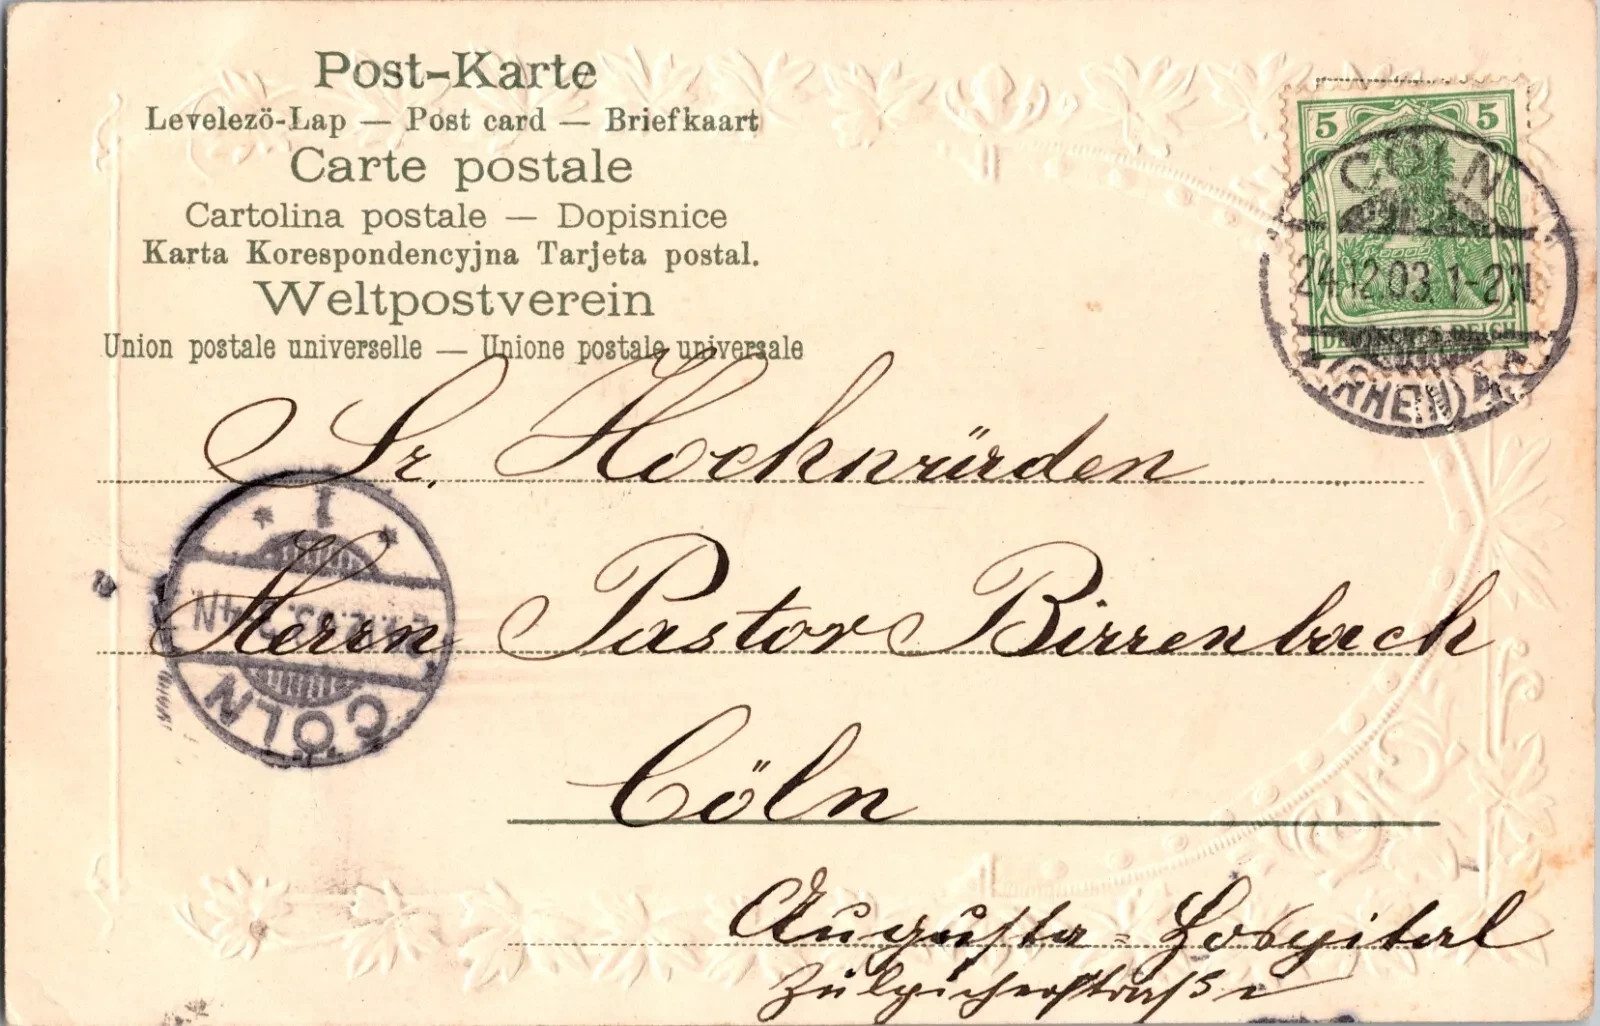 Post-Karte
Levelezö-Lap — Post card — Briefkaart
Carte postale
Cartolina postale — Dopisnice
Karta Korespondencyjna Tarjeta postal.
Weltpostverein
Union postale universelle — Unione postale universale
5 5
DEUTSCHES REICH
CÖLN
24.12.03. 1-2N
(RHEIN)
Sr. Hochwürden
Herrn Pastor Birrenbach
Cöln
Augusta-Hospital
Zülpicherstraße
1
CÖLN